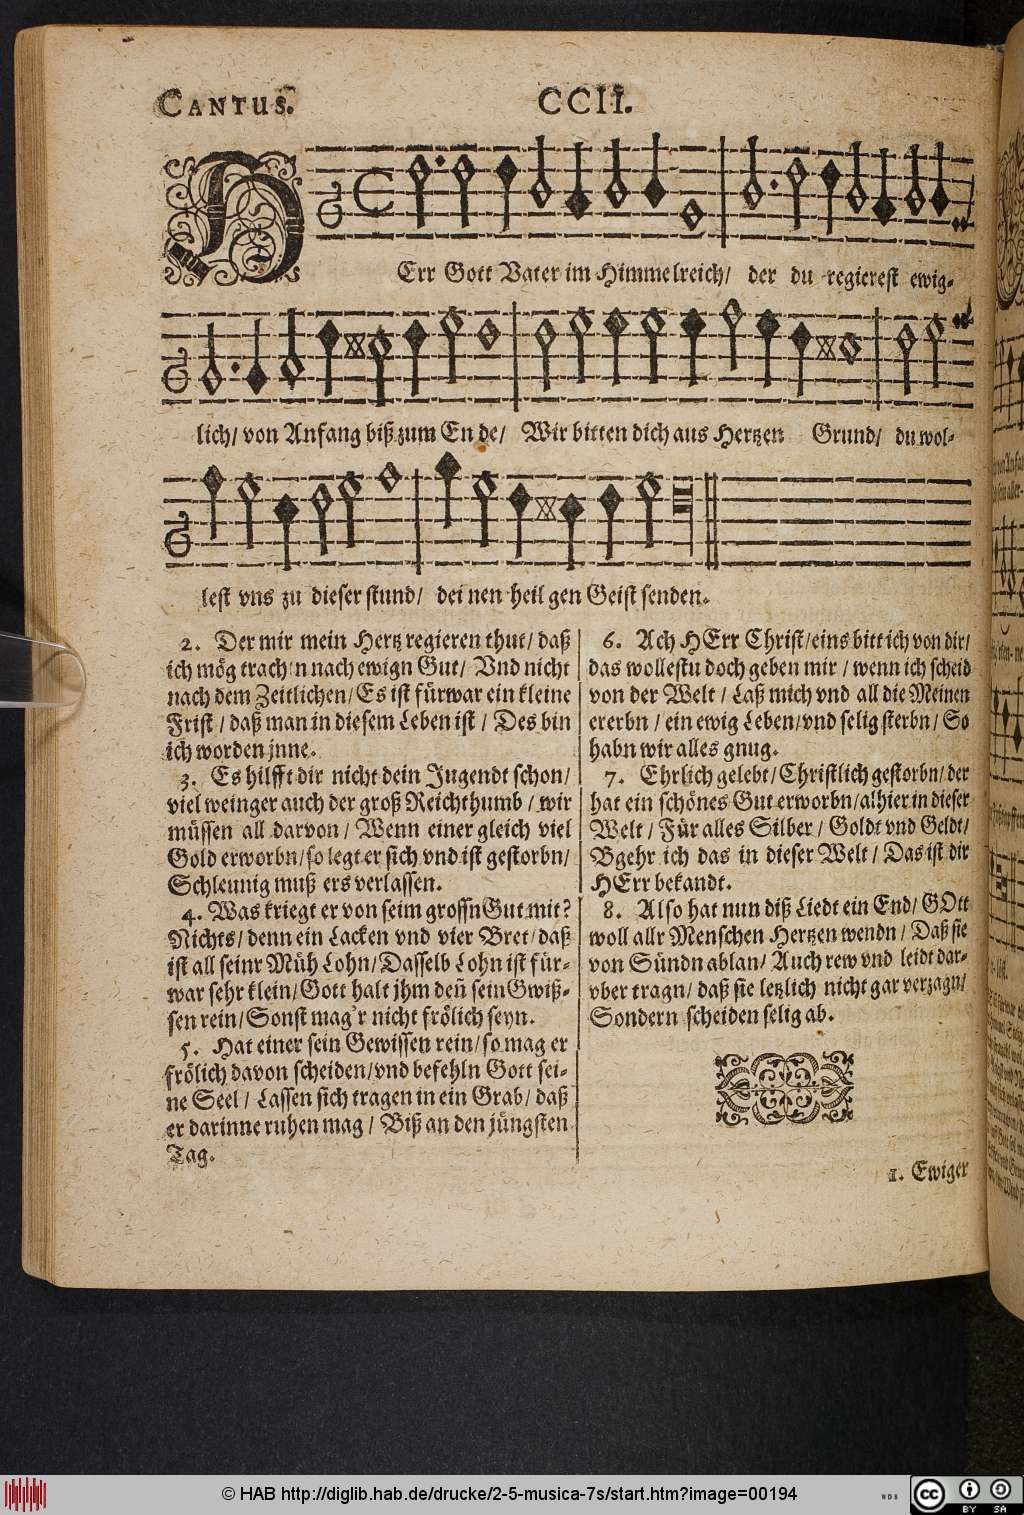 CANTUS.
CCII.
HErr Gott Vater im Himmelreich/ der du regierest ewig-
lich/ von Anfang biß zum En de/ Wir bitten dich aus Hertzen Grund/ du wol-
lest vns zu dieser stund/ dei nen heil gen Geist senden.
2. Der mir mein Hertz regieren thut/ daß
ich mög trach n nach ewign Gut/ Vnd nicht
nach dem Zeitlichen/ Es ist fürwar ein kleine
Frist/ daß man in diesem Leben ist/ Des bin
ich worden jnne.
3. Es hilfft dir nicht dein Jugendt schon/
viel weinger auch der groß Reichthumb/ wir
müssen all darvon/ Wenn einer gleich viel
Gold erworbn/ so legt er sich vnd ist gestorbn/
Schleunig muß ers verlassen.
4. Was kriegt er von seim grossn Gut mit?
Nichts/ denn ein Lacken vnd vier Bret/ daß
ist all seinr Müh Lohn/ Dasselb Lohn ist für-
war sehr klein/ Gott halt jhm deñ sein Gwiß-
sen rein/ Sonst mag'r nicht frölich seyn.
5. Hat einer sein Gewissen rein/ so mag er
frölich davon scheiden/ vnd befehln Gott sei-
ne Seel/ Lassen sich tragen in ein Grab/ daß
er darinne ruhen mag/ Biß an den jüngsten
Tag.
6. Ach HErr Christ/ eins bitt ich von dir/
das wollestu doch geben mir/ wenn ich scheid
von der Welt/ Laß mich vnd all die Meinen
ererbn/ ein ewig Leben/ vnd selig sterbn/ So
habn wir alles gnug.
7. Ehrlich gelebt/ Christlich gestorbn/ der
hat ein schönes Gut erworbn/ alhier in dieser
Welt/ Für alles Silber/ Goldt vnd Geldt/
Bgehr ich das in dieser Welt/ Das ist dir
HErr bekandt.
8. Also hat nun diß Liedt ein End/ GOtt
woll allr Menschen Hertzen wendn/ Daß sie
von Sündn ablan/ Auch rew vnd leidt dar-
vber tragn/ daß sie letzlich nicht gar verzagn/
Sondern scheiden selig ab.
1. Ewiger
© HAB http://diglib.hab.de/drucke/2-5-musica-7s/start.htm?image=00194
WDB
cc
BY SA